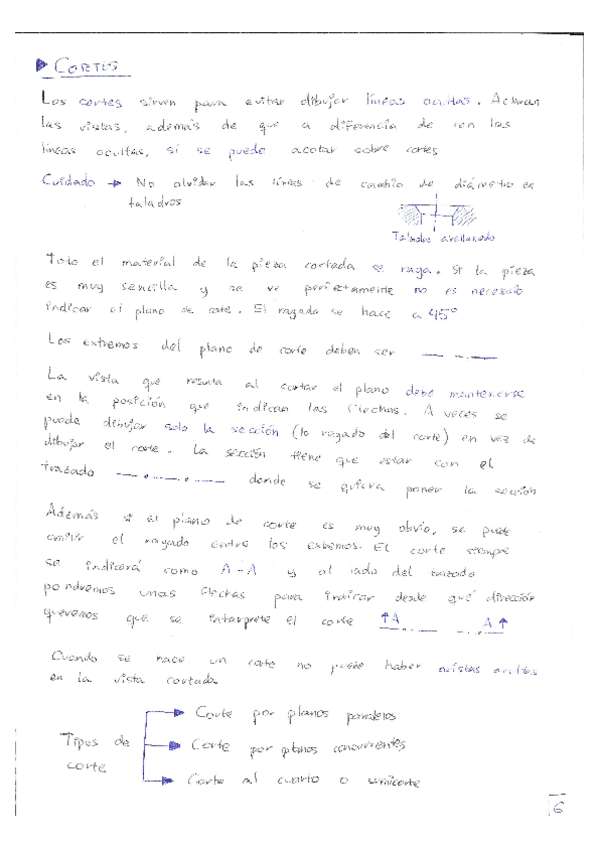 CORTES
Los cortes sirven para evitar dibujar líneas ocultas. Aclaran
las vistas, además de que a diferencia de con las
líneas ocultas, sí se puede acotar sobre cortes
Cuidado → No olvidar las líneas de cambio de diámetro en
taladros
Taladro avellanado
Todo el material de la pieza cortada se raya. Si la pieza
es muy sencilla y se ve perfectamente no es necesario
indicar el plano de corte. El rayado se hace a 45°
Los extremos del plano de corte deben ser
La vista que resulta al cortar el plano debe mantenerse
en la posición que indican las flechas. A veces se
puede dibujar solo la sección (lo rayado del corte) en vez de
dibujar el corte. La sección tiene que estar con el
trazado donde se quiera poner la sección
Además si el plano de corte es muy obvio, se puede
omitir el rayado entre los extremos. El corte siempre
se indicará como A-A y al lado del trazado
pondremos unas flechas para indicar desde qué dirección
queremos que se interprete el corte ↑A A↑
Cuando se hace un corte no puede haber aristas ocultas
en la vista cortada
Corte por planos paralelos
Tipos de corte
Corte por planos concurrentes
Corte al cuarto o semicorte
6